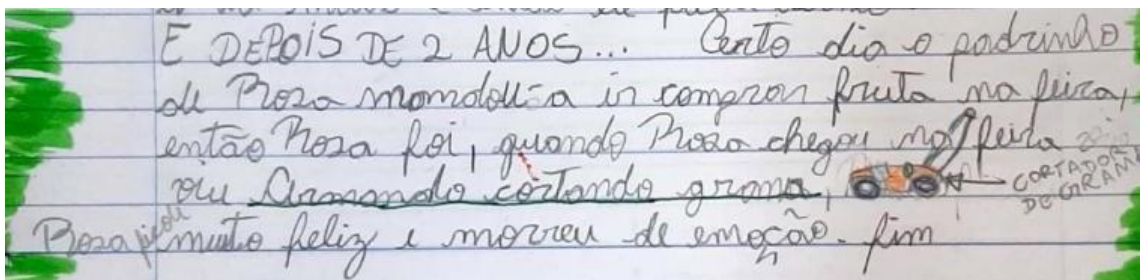 E DEPOIS DE 2 ANOS... Certo dia o padrinho
de Roza mandou-a ir comprar fruta na feira,
então Roza foi, quando Roza chegou na feira
viu Armando cortando grama, ← CORTADOR DE GRAMA
Roza ficou muito feliz e morreu de emoção. fim